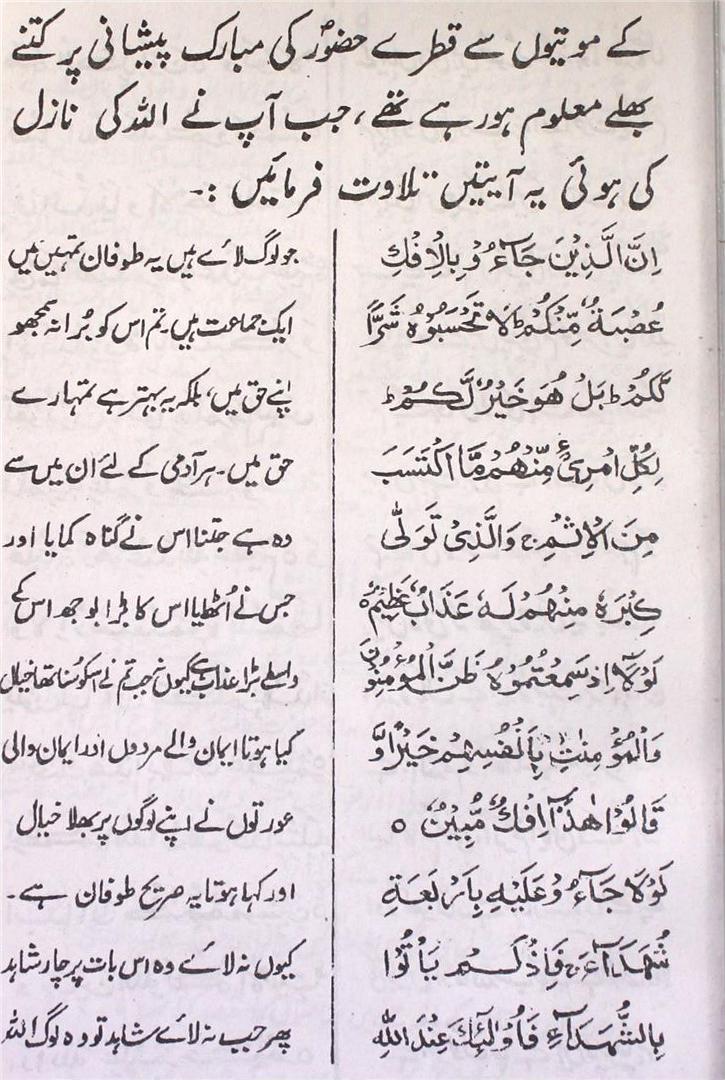 کے موتیوں سے قطرے حضورؐ کی مبارک پیشانی پر کتنے
بھلے معلوم ہو رہے تھے، جب آپ نے اللہ کی نازل
کی ہوئی یہ آیتیں تلاوت فرمائیں :۔
اِنَّ الَّذِیْنَ جَآءُوْ بِالْاِفْكِ
عُصْبَةٌ مِّنْكُمْ ط لَا تَحْسَبُوْهُ شَرًّا
لَّكُمْ ط بَلْ هُوَ خَیْرٌ لَّكُمْ ط
لِكُلِّ امْرِیٴٍ مِّنْهُمْ مَّا اكْتَسَبَ
مِنَ الْاِثْمِ ج وَالَّذِیْ تَوَلّٰی
كِبْرَهٗ مِنْهُمْ لَهٗ عَذَابٌ عَظِیْمٌ ه
لَوْلَآ اِذْ سَمِعْتُمُوْهُ ظَنَّ الْمُؤْمِنُوْنَ
وَالْمُؤْمِنٰتُ بِاَنْفُسِهِمْ خَیْرًا وَّ
قَالُوْا هٰذَآ اِفْكٌ مُّبِیْنٌ ه
لَوْلَا جَآءُوْ عَلَیْهِ بِاَرْبَعَةِ
شُهَدَآءَ ج فَاِذْ لَمْ یَاْتُوْا
بِالشُّهَدَآءِ فَاُولٰٓئِكَ عِنْدَ اللّٰهِ
جو لوگ لائے ہیں یہ طوفان تمہیں میں
ایک جماعت ہیں، تم اس کو بُرا نہ سمجھو
اپنے حق میں، بلکہ یہ بہتر ہے تمہارے
حق میں۔ ہر آدمی کے لئے ان میں سے
وہ ہے جتنا اس نے گناہ کمایا اور
جس نے اُٹھایا اس کا بڑا بوجھ اس کے
واسطے بڑا عذاب ہے کیوں نہ جب تم نے اسکو سُنا تھا خیال
کیا ہوتا ایمان والے مردوں اور ایمان والی
عورتوں نے اپنے لوگوں پر بھلا خیال
اور کہا ہوتا یہ صریح طوفان ہے۔
کیوں نہ لائے وہ اس بات پر چار شاہد
پھر جب نہ لائے شاہد تو وہ لوگ اللہ